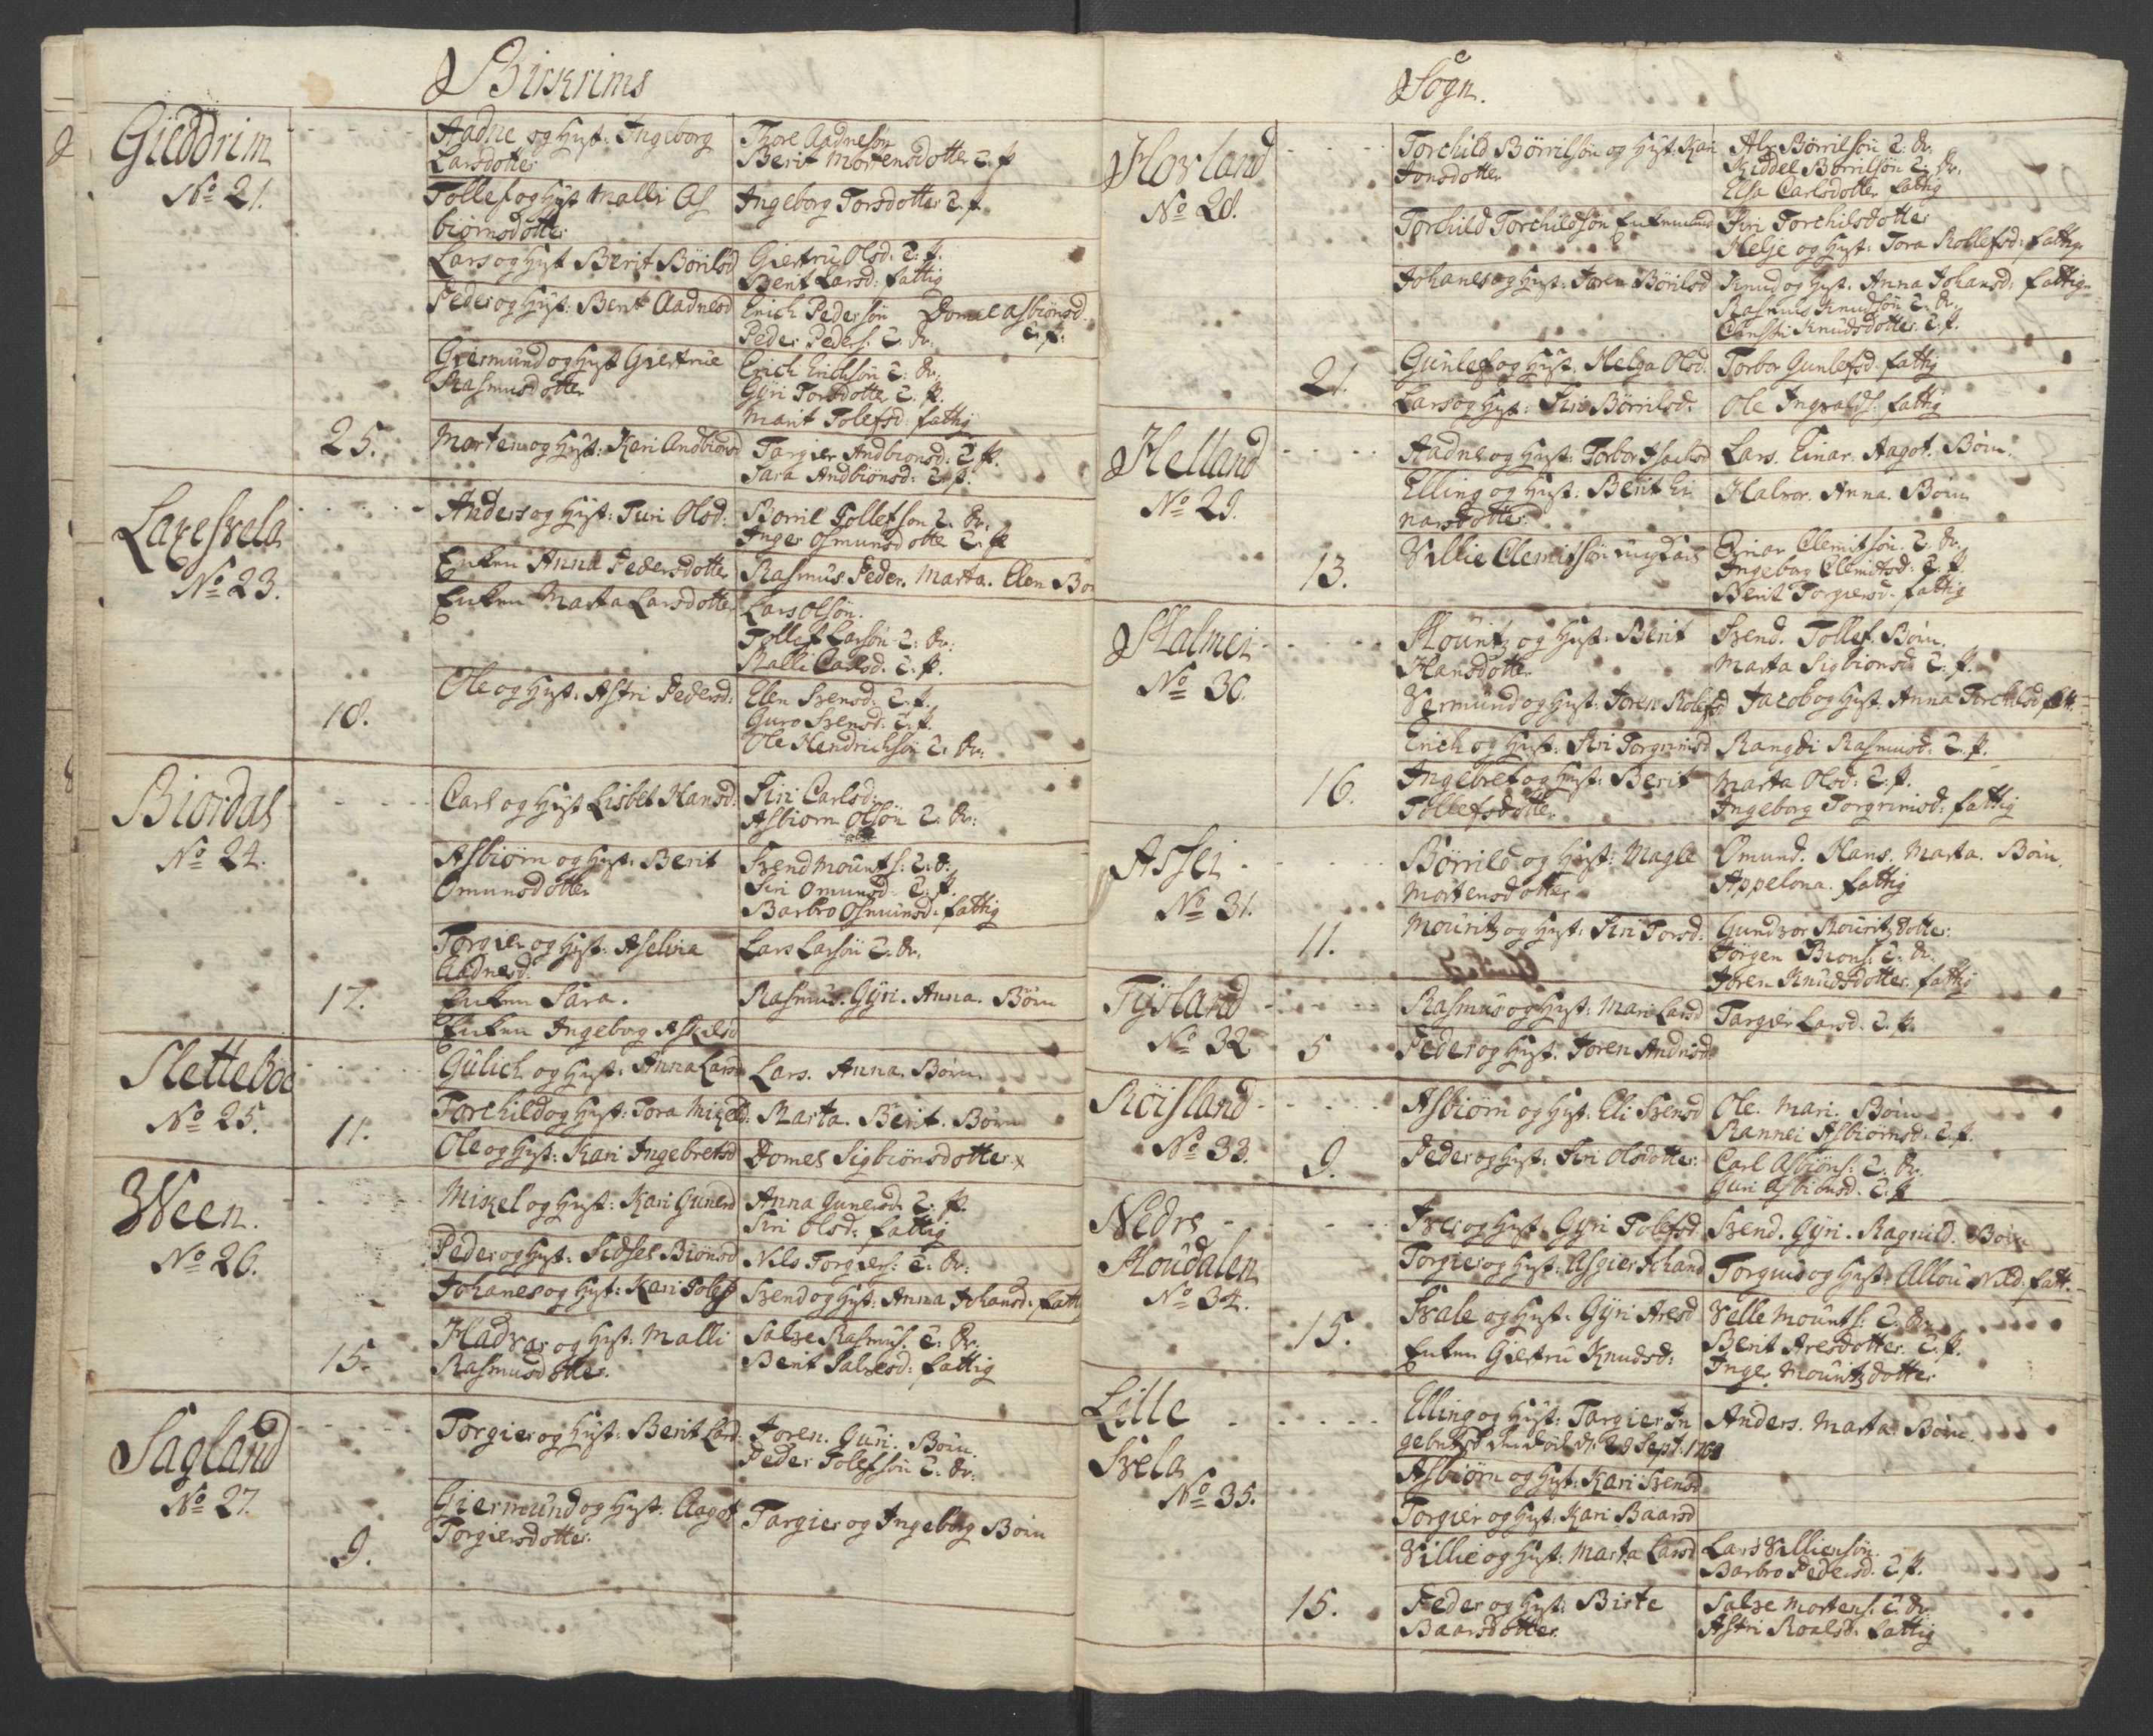 Birkrims
Gieddrim
No 21.
25.
Aadne og Hust. Ingeborg
Larsdotter
Thore Aadnesøn
Berit Mortensdotter T. P
Tollef og Hust Malli As
biørnsdotter
Ingeborg Torsdotter T. P.
Lars og Hust Berit Børilsd
Giertru Olsd. T. P.
Berit Larsd: fattig
Peder og Hust: Berit Aadnesd
Erich Pedersøn Domel Asbiønsd.
Peder Peders. T. Dr. T. P.
Giermund og Hust Giertrue
Rasmusdotter
Erich Erichsøn T. Dr.
Gÿri Torsdotter T. P.
Marit Tolefsd. fattig
Morten og Hust: Keri Andbionsd
Targier Andbionsd: T. P.
Sara Andbiønsd: T. P.
Laxesvela
No 23.
18.
Anders og Hust: Turi Olsd:
Borril Tollefson T. Dr.
Inger Osmunsdotter T. P
Enken Anna Pedersdotter
Rasmus Peder. Marta. Elen Bor
Enken Marta Larsdotter
Lars Olsøn.
Tollef Larsøn T. Dr:
Malli Carlsd. T. P.
Ole og Hust. Astri Pedersd:
Elen Svensd. T. P.
Guro Svensd: T. P.
Ole Hendrichsøn T. Dr.
Biordal
No 24.
17.
Carl og Hust Lisbet Hansd:
Siri Carlsd.
Asbiorn Olsøn T. Dr:
Asbiørn og Hust. Berit
Omunsdotter
Svend Mouritz: T. D:
Siri Omunsd. T. P.
Barbro Osmunsd: fattig
Torgier og Hust. Aselvia
Aadnesd.
Lars Larsøn T. Dr.
Enken Sara.
Rasmus. Gÿri. Anna. Børn
Enken Ingeborg Aslesd
Sletteboe
No 25.
11.
Gulich og Hust. Anna Larsd
Lars. Anna. Børn.
Torchild og Hust: Tora Mikelsd:
Marta. Berit. Børn
Ole og Hust: Kari Ingebretsd
Domel Sigbiønsdotter x
Ween.
No 26.
15.
Mikel og Hust: Kari Gunersd
Anna Gunersd. T. P.
Siri Olsd: fattig
Peder og Hust: Sidsel Biønsd
Nils Torgiers: T. Dr:
Johanes og Hust: Keri Tolefs
Svend og Hust: Anna Johansd. fatti
Hadvar og Hust: Malli
Rasmusdotter.
Salve Rasmus: T: Dr:
Berit Salvesd: fattig
Sagland
No 27.
9.
Torgier og Hust: Berit Larsd:
Joren. Guri. Børn
Peder Tolefsøn T. Dr.
Giermund og Hust. Aagot
Torgiersdotter
Targier og Ingeborg Børn
Sogn.
Hovland
No 28.
21.
Torchild Børrilsøn og Hust. Kari
Jonsdotter
Ale Børrilsøn T. Dr.
Kiddel Børrilsøn T. Dr.
Elsa Carlsdotter fattig
Torchild Torchildsøn Enkemand
Siri Torchilsdotter
Helje og Hust: Tora Rollefsd: fattige
Johanes og Hust: Joren Børilsd
Knud og Hust. Anna Johansd: fattige
Rasmus Knudsøn T. Dr.
Knudsdotter. T. P.
Gunlef og Hust. Helga Olsd.
Torbor Gunlefsd. fattig
Lars og Hust: Siri Børrilsd:
Ole Ingvalds: fattig
Helland
No 29.
13.
Aadne og Hust: Torbor Isacksd
Lars. Einar. Aagot. Børn.
Elling og Hust. Berit Ei
narsdotter
Halvor. Anna. Børn
Villie Clemitsøn ung Karl
Einar Clemitsøn. T. Dr.
Ingeborg Clemitsd. T. P.
Berit Torgiersd. fattig
Malmei
No 30.
16.
Mouritz og Hust. Berit
Hansdotter
Svend. Tollef. Børn.
Marta Sigbionsd T. P.
Vermund og Hust. Joren Rolefsd
Jacob og Hust. Anna Torchilsd fatt.
Erich og Hust: Siri Torgrimsd
Rangdi Rasmusd: T. P.
Ingebret og Hust: Berit
Tollefsdotter
Marta Olsd. T. P.
Ingeborg Torgrimsd: fattig
Assei
No 31.
11.
Børrild og Hust: Magle
Mortensdotter
Omund. Hans. Marta. Børn.
Appelona. fattig
Mouritz og Hust: Siri Torsd:
Gundvor Mouritzdotter:
Jørgen Bions: T. Dr.
Joren Knudsdotter. fattig
Tÿsland
No 32
5
Rasmus og Hust: Mari Larsd
Targier Larsd. T. P.
Peder og Hust. Joren Andrisd.
Røisland
No 33.
9.
Asbiørn og Hust. Eli Svensd
Ole. Mari. Børn
Rannei Asbiørnsd. T. P.
Peder og Hust: Siri Olsdotter:
Carl Asbiøns: T. Dr.
Guri Asbionsd. T. P
Nedre
Moudalen
No 34.
15.
Iver og Hust. Gÿri Tolefsd.
Svend. Gÿri. Ragnild. Børn
Torgier og Hust: Asgier Johansd
Torgius og Hust: Allou Nilsd. fatt.
Svale og Hust. Gÿri Aresd
Velle Mouritz: T. Dr.
Berit Aresdotter. T. P.
Enken Giertru Knudsd:
Inger Mouritzdotter
Lille
Svela
No 35.
15.
Elling og Hust: Targier In
gebretsd 29 Sept: 1761
Anders. Marta. Børn.
Asbiørn og Hust: Kari Svensd
Torgier og Hust: Kari Baarsd
Villie og Hust: Marta Larsd
Lars Villiensøn.
Barbro Pedersd. T. P.
Peder og Hust: Birte
Baarsdotter.
Salve Mortens. T. Dr.
Astri Roalsd. fattig